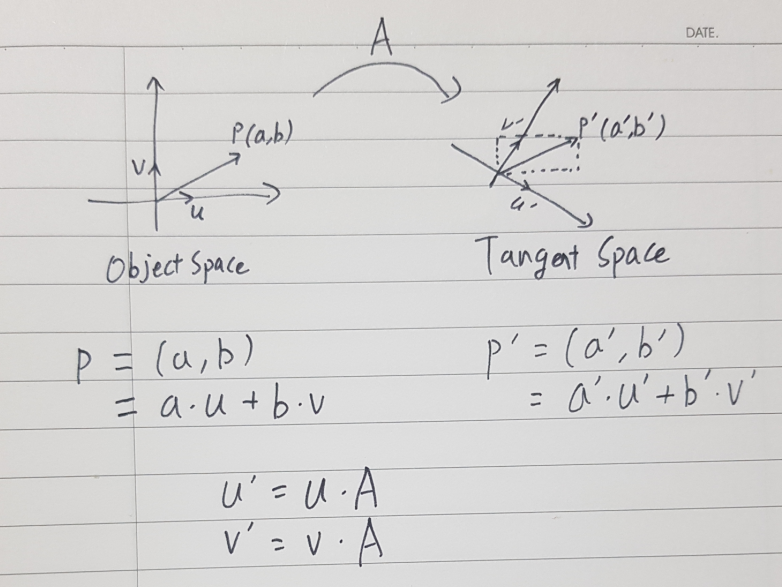 DATE.
A
P(a,b)
v
u
Object Space
v'
P'(a',b')
u'
Tangent Space
P = (a,b)
= a·u + b·v
P' = (a',b')
= a'·u' + b'·v'
u' = u·A
v' = v·A